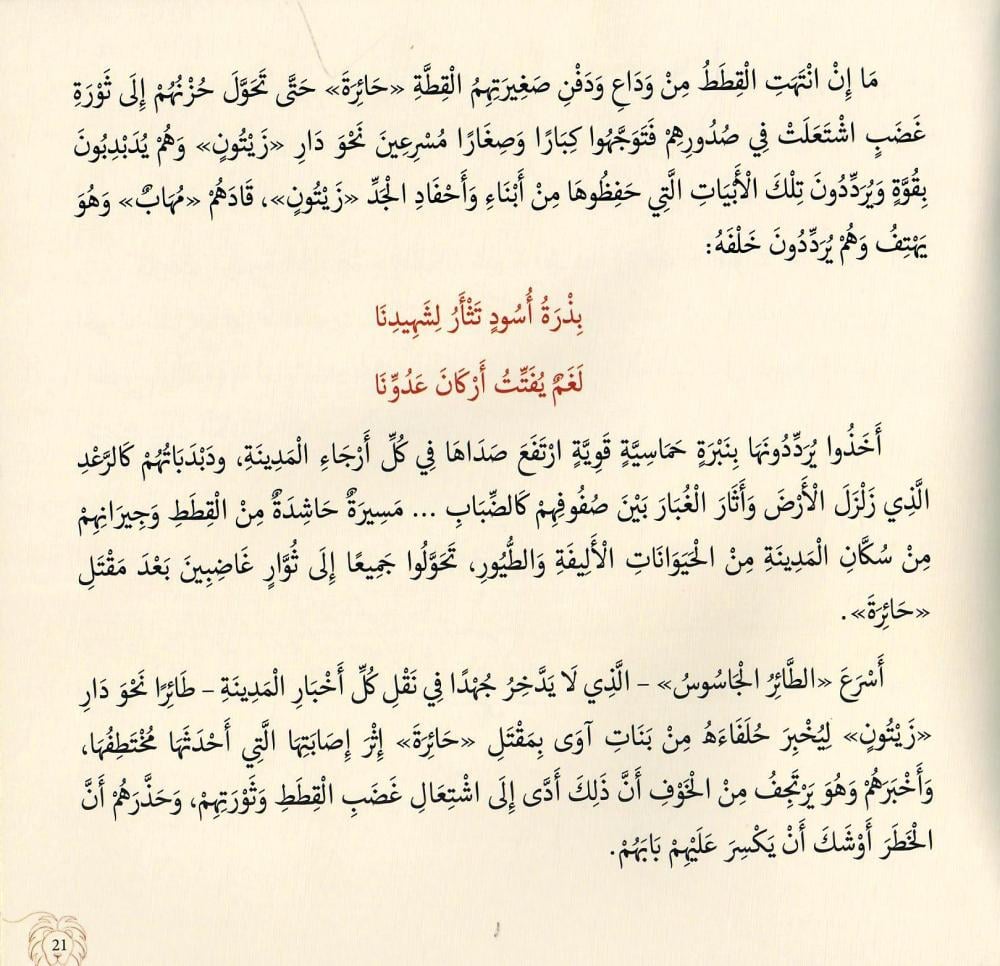 مَا إِنْ انْتَهَتِ الْقِطَطُ مِنْ وَدَاعِ وَدَفْنِ صَغِيرَتِهِمُ الْقِطَّةِ «حَائِرَةَ» حَتَّى تَحَوَّلَ حُزْنُهُمْ إِلَى ثَوْرَةِ
غَضَبٍ اشْتَعَلَتْ فِي صُدُورِهِمْ فَتَوَجَّهُوا كِبَارًا وَصِغَارًا مُسْرِعِينَ نَحْوَ دَارِ «زَيْتُونٍ» وَهُمْ يُدَبْدِبُونَ
بِقُوَّةٍ وَيُرَدِّدُونَ تِلْكَ الْأَبْيَاتِ الَّتِي حَفِظُوهَا مِنْ أَبْنَاءِ وَأَحْفَادِ الْجَدِّ «زَيْتُونٍ»، قَادَهُمْ «مُهَابٌ» وَهُوَ
يَهْتِفُ وَهُمْ يُرَدِّدُونَ خَلْفَهُ:
بِذْرَةُ أُسُودٍ تَثْأَرُ لِشَهِيدِنَا
لَغَمٌ يُفَتِّتُ أَرْكَانَ عَدُوِّنَا
أَخَذُوا يُرَدِّدُونَهَا بِنَبْرَةٍ حَمَاسِيَّةٍ قَوِيَّةٍ ارْتَفَعَ صَدَاهَا فِي كُلِّ أَرْجَاءِ الْمَدِينَةِ، ودَبْدَبَاتُهُمْ كَالرَّعْدِ
الَّذِي زَلْزَلَ الْأَرْضَ وَأَثَارَ الْغُبَارَ بَيْنَ صُفُوفِهِمْ كَالضِّبَابِ ... مَسِيرَةٌ حَاشِدَةٌ مِنْ الْقِطَطِ وَجِيرَانِهِمْ
مِنْ سُكَّانِ الْمَدِينَةِ مِنْ الْحَيَوَانَاتِ الْأَلِيفَةِ وَالطُّيُورِ، تَحَوَّلُوا جَمِيعًا إِلَى ثُوَّارٍ غَاضِبِينَ بَعْدَ مَقْتَلِ
«حَائِرَةَ».
أَسْرَعَ «الطَّائِرُ الْجَاسُوسُ» – الَّذِي لَا يَدَّخِرُ جُهْدًا فِي نَقْلِ كُلِّ أَخْبَارِ الْمَدِينَةِ – طَائِرًا نَحْوَ دَارِ
«زَيْتُونٍ» لِيُخْبِرَ حُلَفَاءَهُ مِنْ بَنَاتِ آوَى بِمَقْتَلِ «حَائِرَةَ» إِثْرَ إِصَابَتِهَا الَّتِي أَحْدَثَهَا مُخْتَطِفُهَا،
وَأَخْبَرَهُمْ وَهُوَ يَرْتَجِفُ مِنْ الْخَوْفِ أَنَّ ذَلِكَ أَدَّى إِلَى اشْتِعَالِ غَضَبِ الْقِطَطِ وَثَوْرَتِهِمْ، وَحَذَّرَهُمْ أَنَّ
الْخَطَرَ أَوْشَكَ أَنْ يَكْسِرَ عَلَيْهِمْ بَابَهُمْ.
21